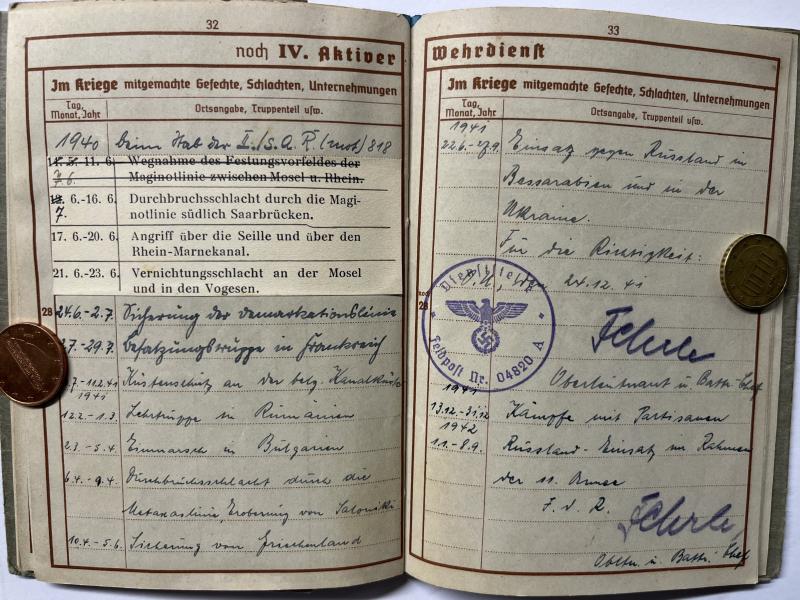 32
noch IV. Aktiver
Im Kriege mitgemachte Gefechte, Schlachten, Unternehmungen
Tag, Monat, Jahr
Ortsangabe, Truppenteil usw.
1940 beim Stab der I./s.A.R. (mot) 818
11. 6. Wegnahme des Festungsvorfeldes der
7.6. Maginotlinie zwischen Mosel u. Rhein.
6.-16. 6. Durchbruchsschlacht durch die Magi-
7. notlinie südlich Saarbrücken.
17. 6.-20. 6. Angriff über die Seille und über den
Rhein-Marnekanal.
21. 6.-23. 6. Vernichtungsschlacht an der Mosel
und in den Vogesen.
28
24.6.-2.7. Sicherung der Demarkationslinie
7.-29.7. Besatzungstruppe in Frankreich
7.-11.2.41 Küstenschutz an der belg. Kanalküste
1941
12.2.-1.3. Lehrtruppe in Rumänien
2.3.-5.4. Einmarsch in Bulgarien
6.4.-9.4. Durchbruchsschlacht durch die
Metaxaslinie, Eroberung von Saloniki
10.4.-5.6. Sicherung von Griechenland
33
Wehrdienst
Im Kriege mitgemachte Gefechte, Schlachten, Unternehmungen
Tag, Monat, Jahr
Ortsangabe, Truppenteil usw.
1941
22.6.- Einsatz gegen Russland in
Bessarabien und in der
Ukraine.
Für die Richtigkeit:
24.12.41
noch 28
Dienststelle
Feldpost Nr. 04820 A
Fehrle
Oberleutnant u. Battr. Chef
1941
13.12.-31.12. Kämpfe mit Partisanen
1942
1.1.-8.9. Russland-Einsatz im Rahmen
der 11. Armee
F. d. R.
Fehrle
Obltn. u. Battr. Chef